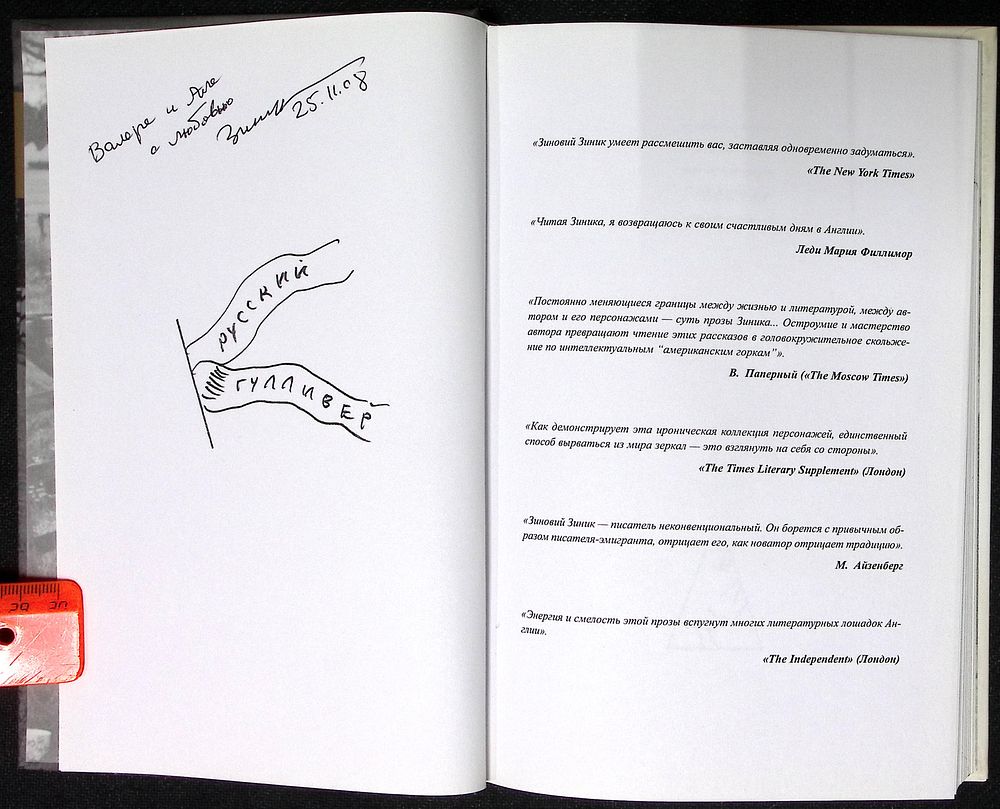 Валере и Алле
с любовью
Зиник
25.11.08
РУССКИЙ
ГУЛЛИВЕР
«Зиновий Зиник умеет рассмешить вас, заставляя одновременно задуматься».
«The New York Times»
«Читая Зиника, я возвращаюсь к своим счастливым дням в Англии».
Леди Мария Филлимор
«Постоянно меняющиеся границы между жизнью и литературой, между ав-
тором и его персонажами — суть прозы Зиника... Остроумие и мастерство
автора превращают чтение этих рассказов в головокружительное скольже-
ние по интеллектуальным “американским горкам”».
В. Паперный («The Moscow Times»)
«Как демонстрирует эта ироническая коллекция персонажей, единственный
способ вырваться из мира зеркал — это взглянуть на себя со стороны».
«The Times Literary Supplement» (Лондон)
«Зиновий Зиник — писатель неконвенциональный. Он борется с привычным об-
разом писателя-эмигранта, отрицает его, как новатор отрицает традицию».
М. Айзенберг
«Энергия и смелость этой прозы вспугнут многих литературных лошадок Ан-
глии».
«The Independent» (Лондон)